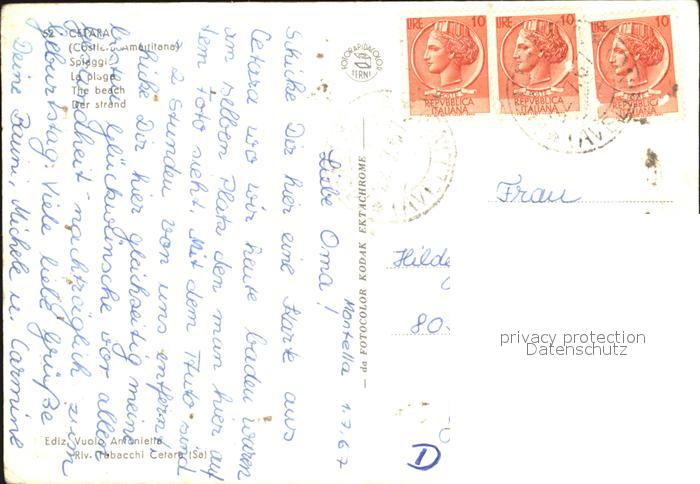 52 - CETARA
(Costiera Amalfitana)
Spiaggia
La plage
The beach
Der strand
FOTORAPIDACOLOR
TERNI
— da FOTOCOLOR KODAK EKTACHROME —
Ediz. Vuolo Antonietta
Riv. Tabacchi Cetara (Sa)
LIRE 10
REPVBBLICA
ITALIANA
LIRE 10
REPVBBLICA
ITALIANA
LIRE 10
REPVBBLICA
ITALIANA
Montella 1.7.67
Liebe Oma!
Schicke Dir hier eine Karte aus
Cetara wo wir heute baden waren
am selben Platz den man hier auf
dem Foto sieht. Mit dem Auto sind
2 Stunden von uns entfernt.
Schicke Dir hier gleichzeitig meine
Glückwünsche vor allem
Gesundheit nachträglich zum
Geburtstag. Viele liebe Grüße
Deine Michele u. Carmine
Frau
Hilde
80
D
privacy protection
Datenschutz